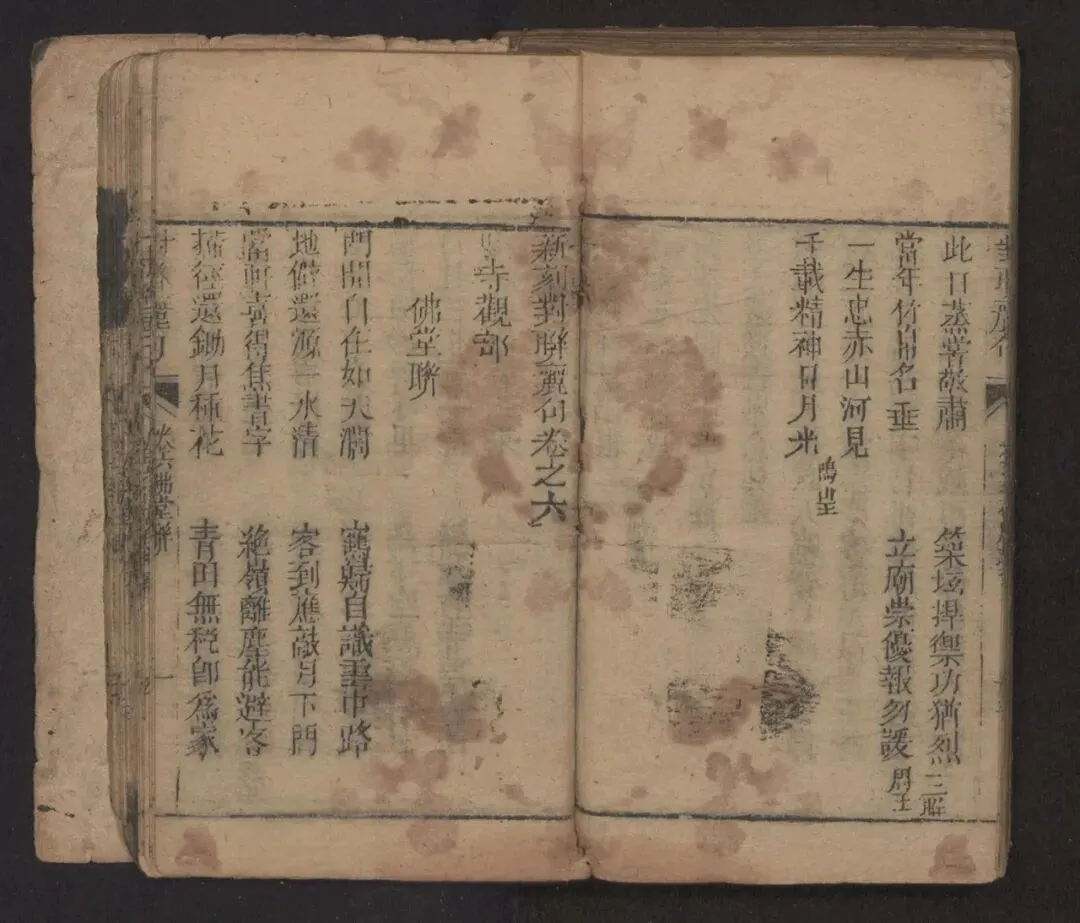 此日蒸嘗敬肅
築城捍禦功猶烈
三解
當年竹帛名垂
立廟崇優報勿諼
關王
一生忠赤山河見
千載精神日月光
新刻對聯麗句卷之六
寺觀部
佛堂聯
門開自在如天濶
鶴歸自識雲中路
地僻還源一水清
客到應敲月下門
當軒喜得蕉書字
絶嶺離塵能避客
掃徑還鋤月種花
青田無稅即為家
對聯麗句
卷六 佛堂聯